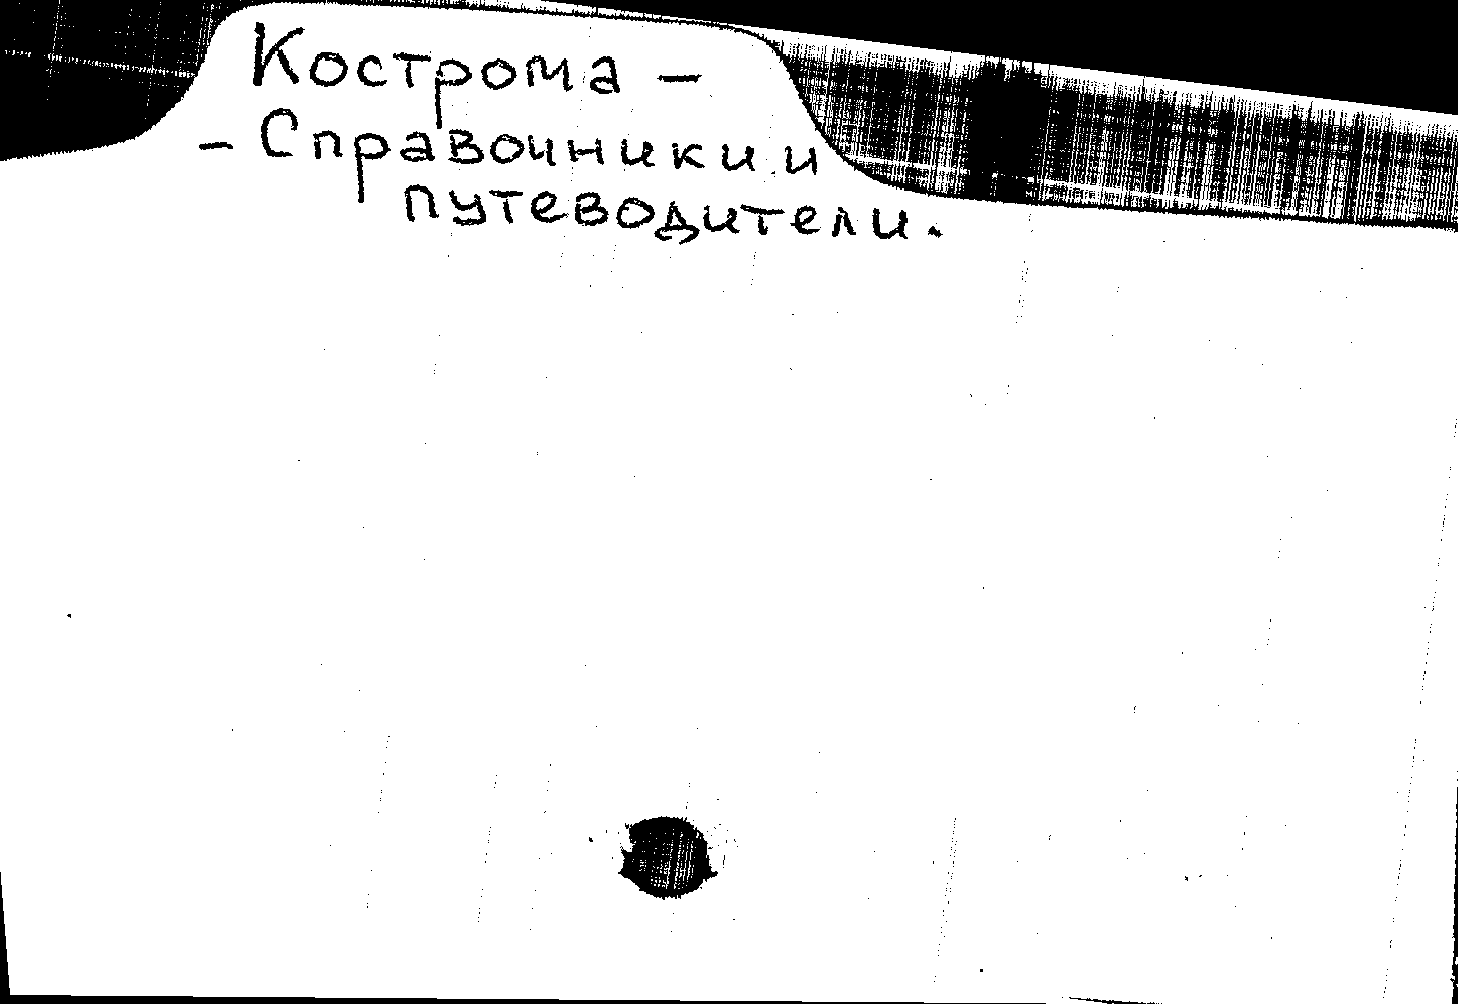 Кострома –
– Справочники и
путеводители.